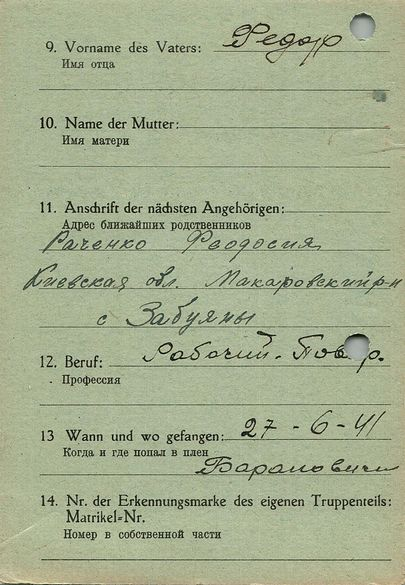 9. Vorname des Vaters: Федор
Имя отца
10. Name der Mutter:
Имя матери
11. Anschrift der nächsten Angehörigen:
Адрес ближайших родственников
Раченко Феодосия
Киевская обл. Макаровский р-н
с Забуяны
12. Beruf: Рабочий. Повар.
Профессия
13 Wann und wo gefangen: 27-6-41
Когда и где попал в плен
Барановичи
14. Nr. der Erkennungsmarke des eigenen Truppenteils:
Matrikel-Nr.
Номер в собственной части